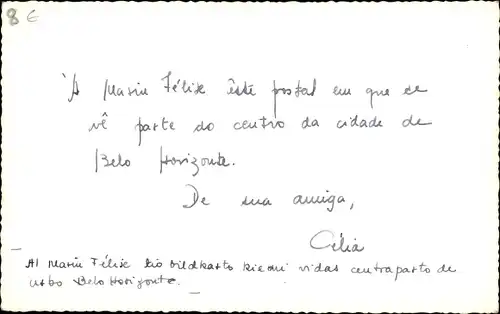 8 €
À Mariu Félise êste postal em que se
vê parte do centro da cidade de
Belo Horizonte.
De sua amiga,
Célia
Al Mariu Félise tio bildkarto kie mi vidas centra parto de
urbo Belo Horizonte.